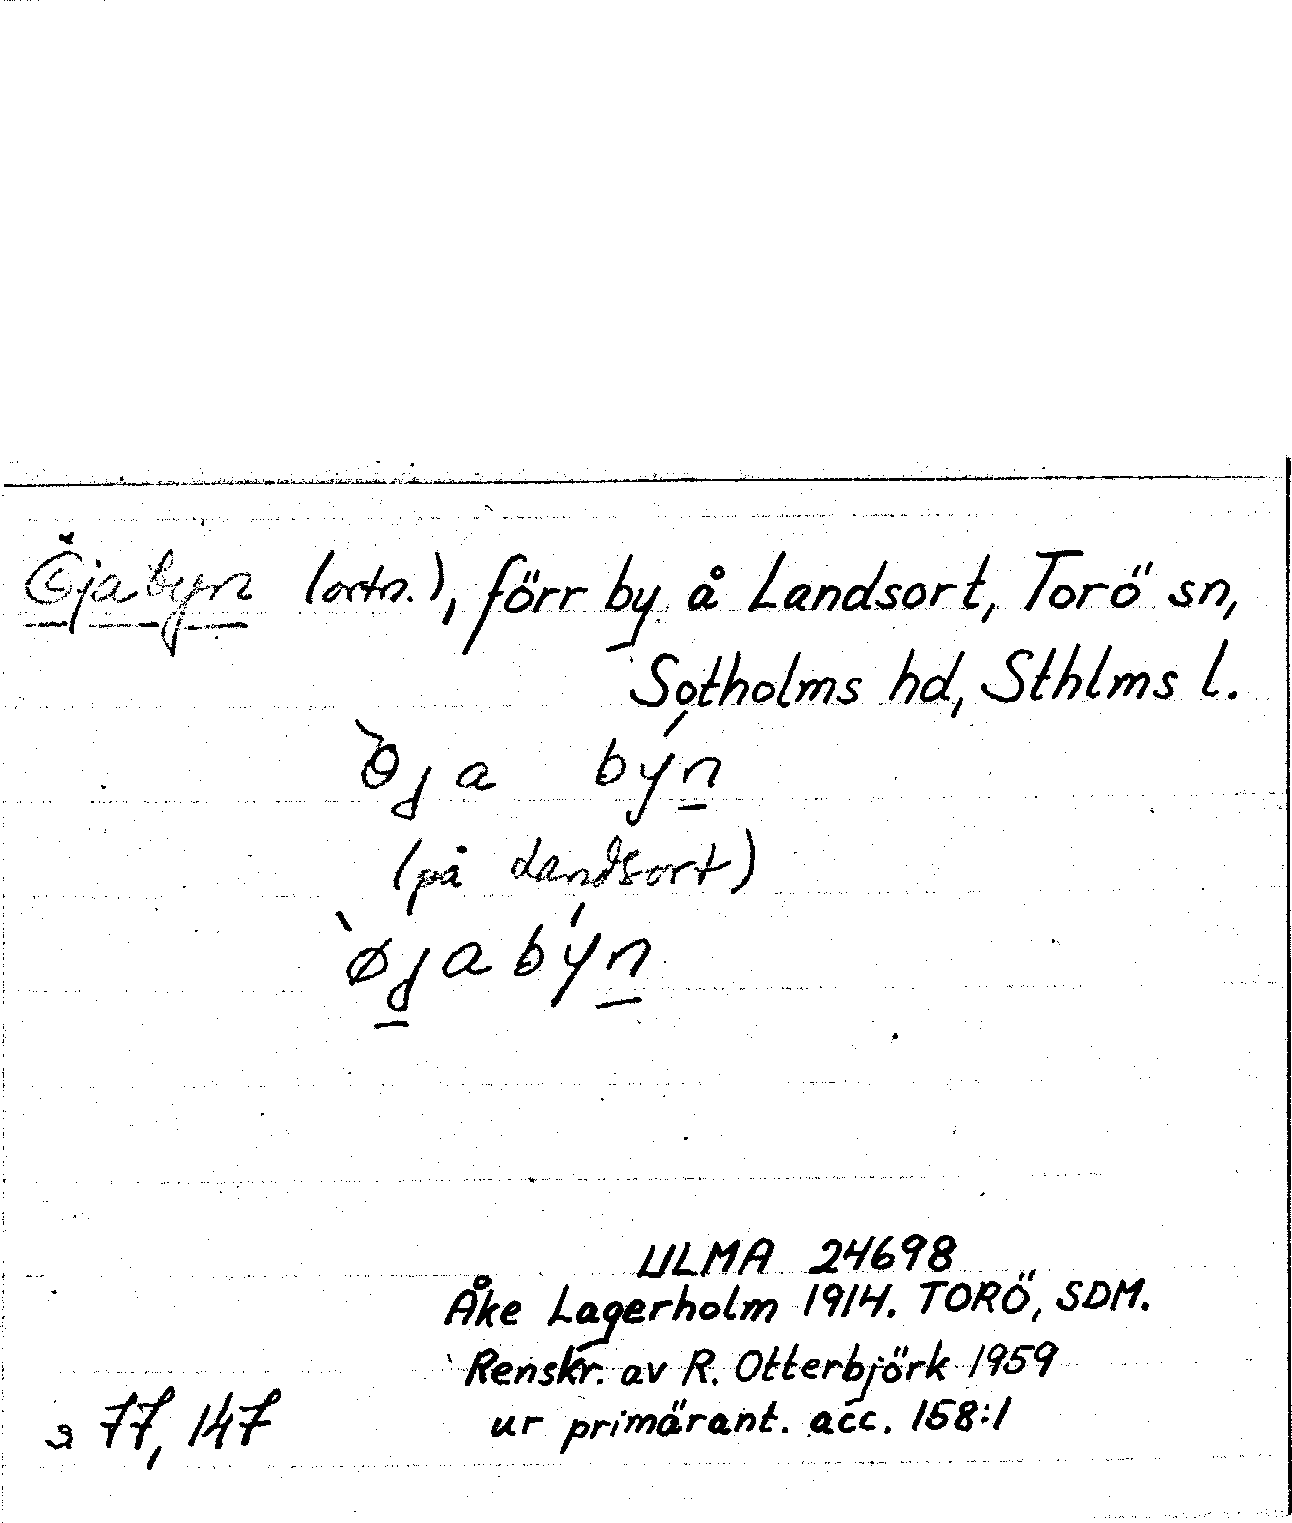 Öjabyn (ortn.), förr by å Landsort, Torö sn,
Sotholms hd, Sthlms l.
ɵ̀ja býn
(på Landsort)
ø̀jabýn
ULMA 24698
Åke Lagerholm 1914. TORÖ, SDM.
Renskr. av R. Otterbjörk 1959
ur primärant. acc. 158:1
s 77, 147